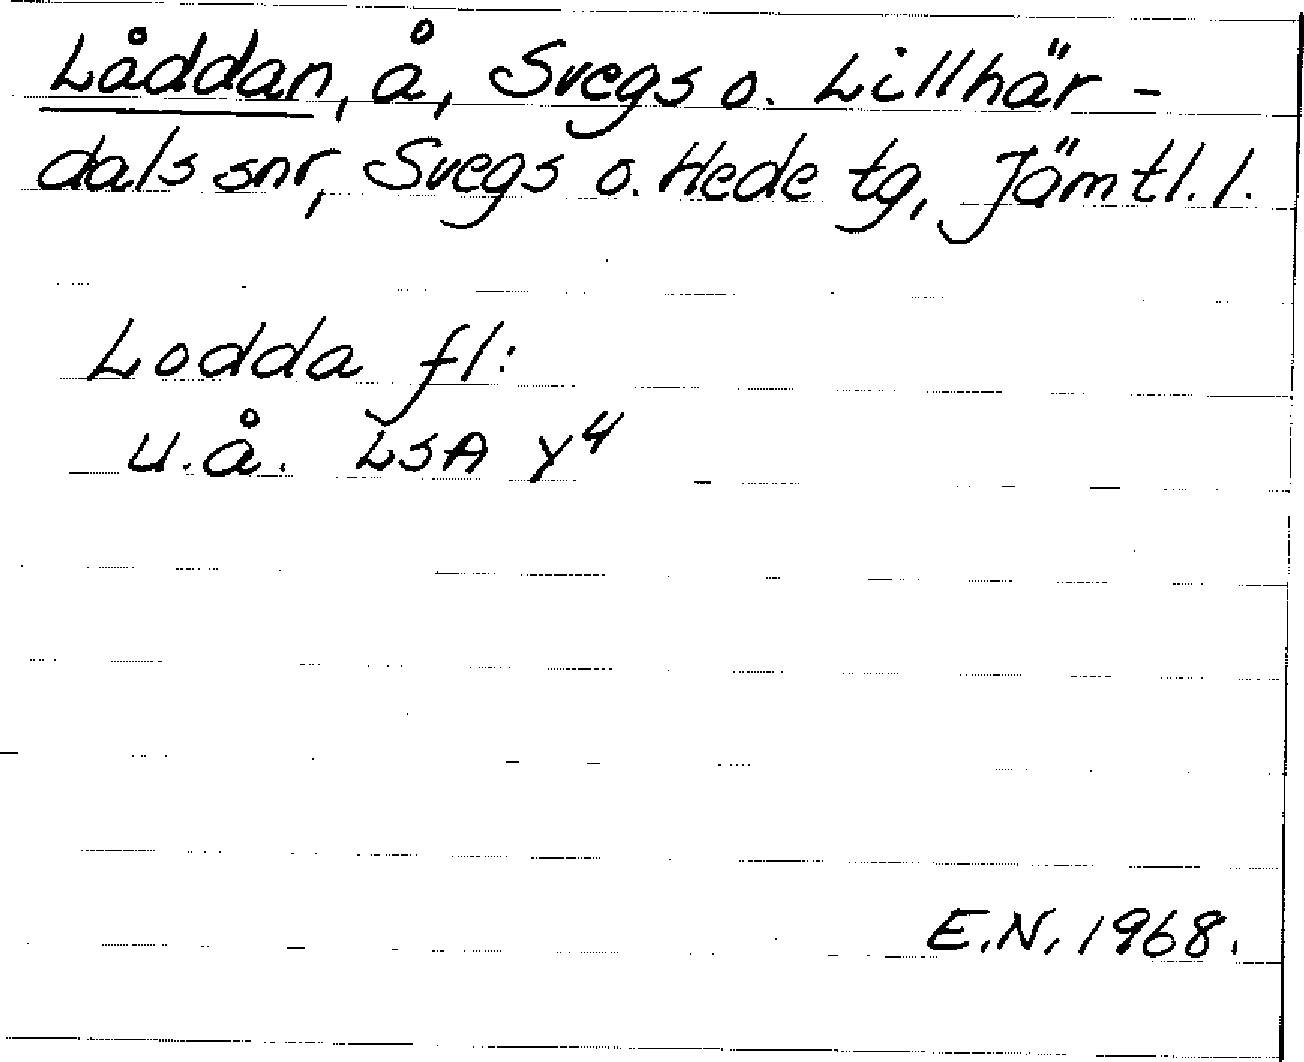 Låddan, å, Svegs o. Lillhär-
dals snr, Svegs o. Hede tg, Jämtl. l.
Lodda fl:
u.å. LSA Y⁴
E.N. 1968.